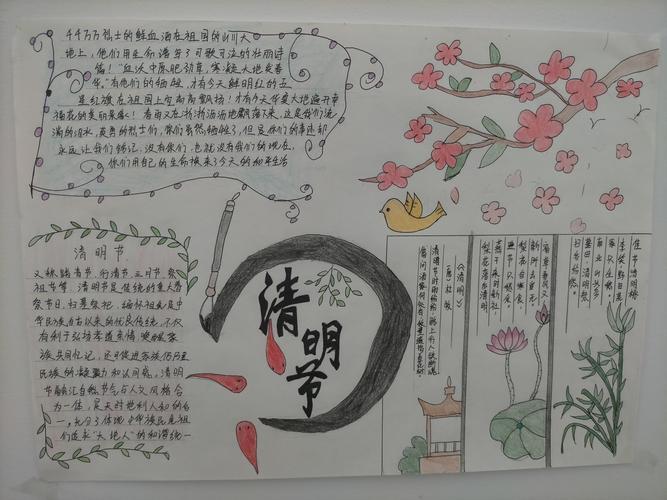 千千万万烈士的鲜血洒在祖国的山川大
地上，他们用生命谱写了可歌可泣的壮丽诗
篇！"血沃中原肥劲草，寒凝大地发春
华。"有他们的牺牲，才有今天鲜明红的五
星红旗在祖国上空高高飘扬！才有今天华夏大地遍开幸
福花的美丽景象！看雨又在淅淅沥沥地飘落下来，这是我们流
淌的泪水，英勇的烈士们，你们虽然牺牲了，但是你们的事迹却
永远让我们铭记，没有你们，也就没有我们的现在，
你们用自己的生命换来了今天的和平生活
清明节
又称踏青节、行清节、三月节、祭
祖节等，清明节是传统的重大春
祭节日，扫墓祭祀、缅怀祖先是中
华民族自古以来的优良传统，不仅
有利于弘扬孝道亲情、唤醒家
族共同记忆，还可促进家族成员乃至
民族的凝聚力和认同感，清明
节融汇自然节气与人文风俗为
一体，是天时地利人和的合
一，充分了体现中华民族先祖
们追求"天地人"的和谐统一
清明节
佳节清明桃
李笑野田荒
《清明》
（唐）杜牧
清明时节雨纷纷，路上行人欲断魂
借问酒家何处有，牧童遥指杏花村